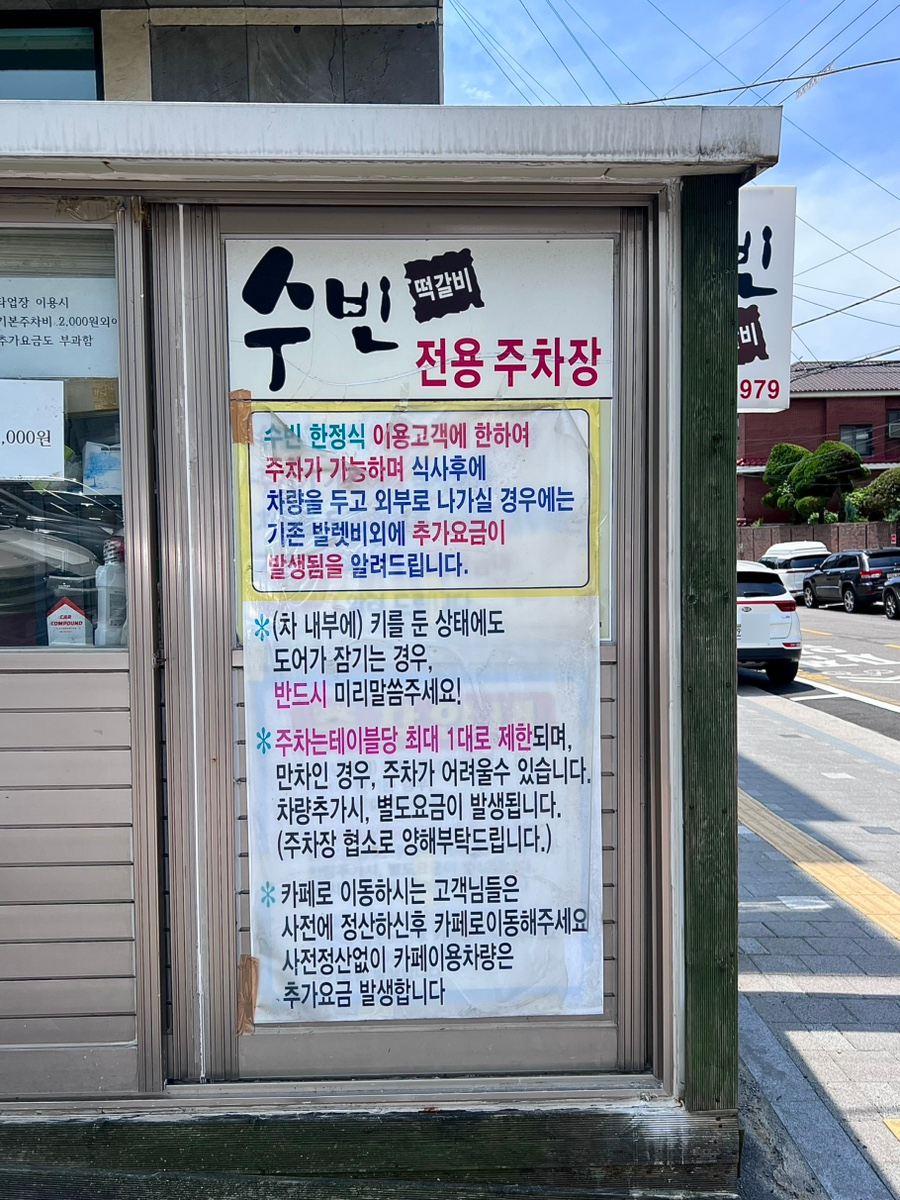 타업장 이용시
기본주차비 2,000원외
추가요금도 부과함
,000원
CAR
COMPOUND
수빈 떡갈비
전용 주차장
수빈 한정식 이용고객에 한하여
주차가 가능하며 식사후에
차량을 두고 외부로 나가실 경우에는
기존 발렛비외에 추가요금이
발생됨을 알려드립니다.
*(차 내부에) 키를 둔 상태에도
도어가 잠기는 경우,
반드시 미리말씀주세요!
*주차는테이블당 최대 1대로 제한되며,
만차인 경우, 주차가 어려울수 있습니다.
차량추가시, 별도요금이 발생됩니다.
(주차장 협소로 양해부탁드립니다.)
* 카페로 이동하시는 고객님들은
사전에 정산하신후 카페로이동해주세요
사전정산없이 카페이용차량은
추가요금 발생합니다
빈
비
979